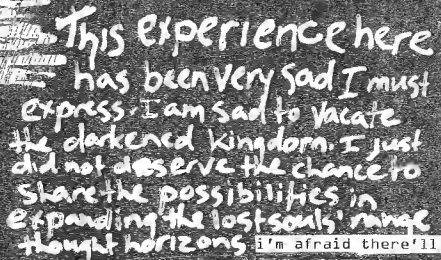 This experience here
has been very sad I must
express. I am sad to vacate
the darkened kingdom. I just
did not deserve the chance to
share the possibilities in
expanding the lost souls' range
thought horizons i'm afraid there'll